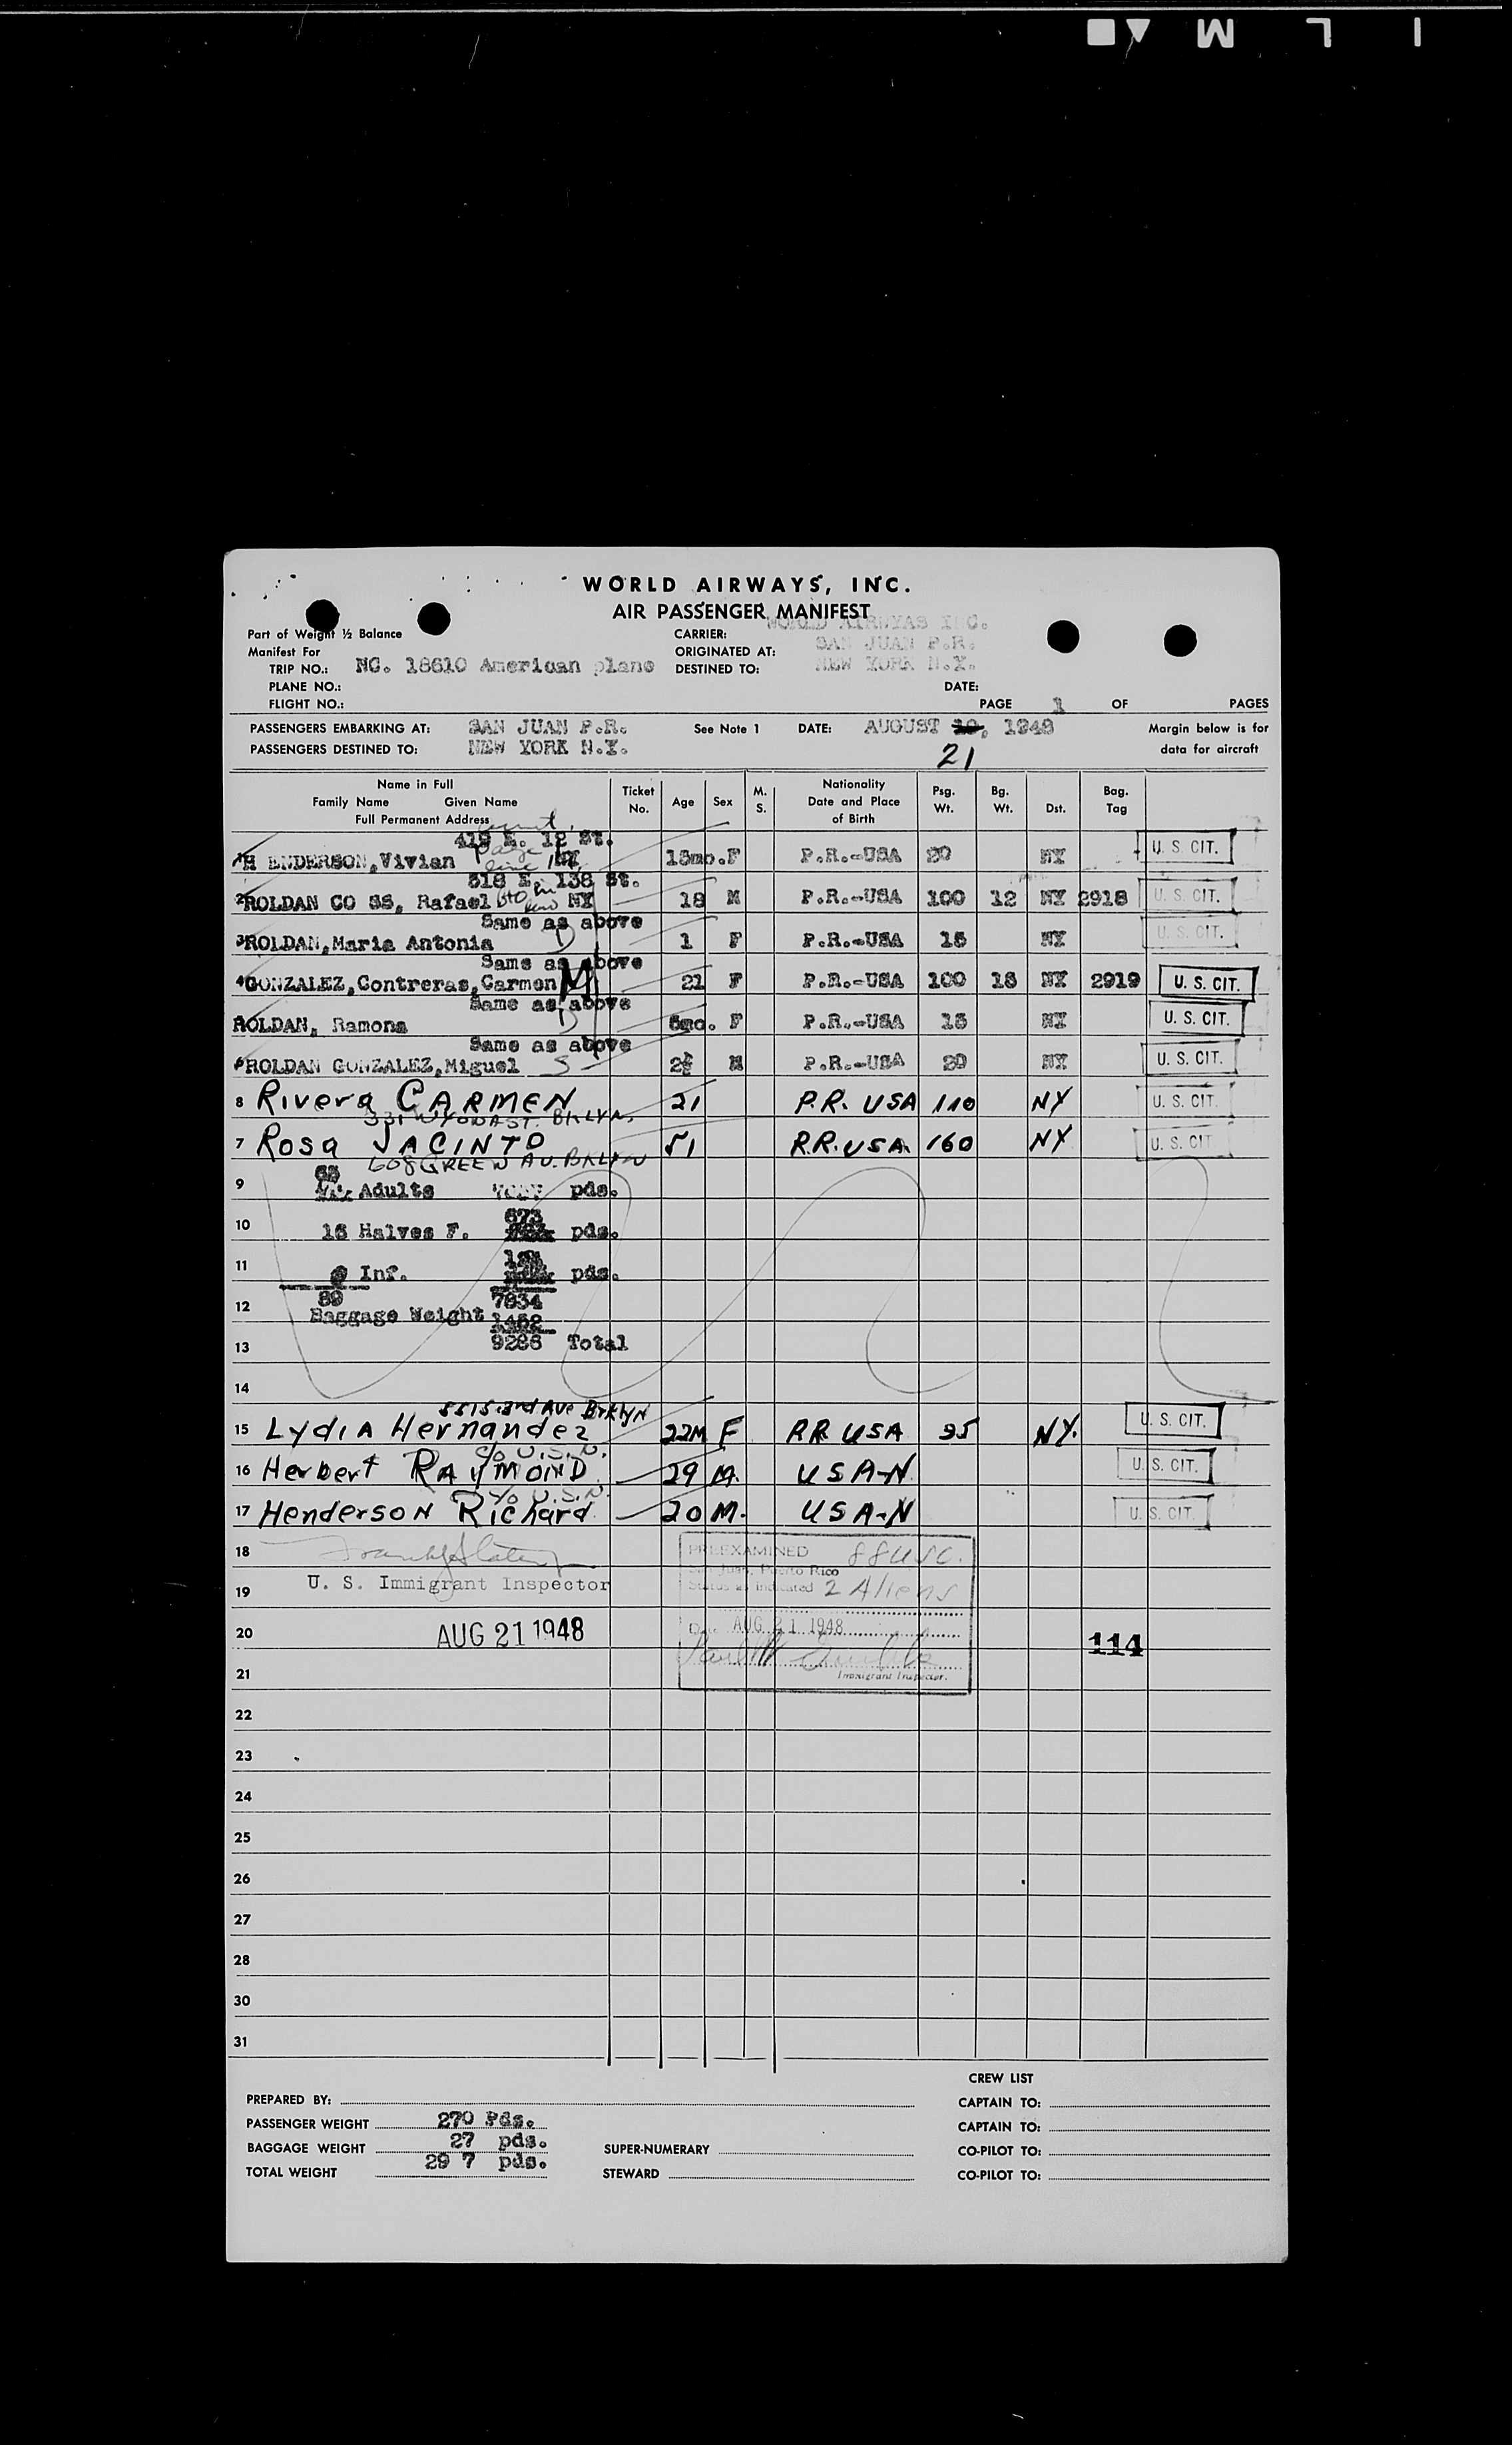 WORLD AIRWAYS, INC.
AIR PASSENGER MANIFEST
Part of Weight ½ Balance
Manifest For
TRIP NO.: NC. 18610 American plane
PLANE NO.:
FLIGHT NO.:
CARRIER: WORLD AIRWYAS INC.
ORIGINATED AT: SAN JUAN P.R.
DESTINED TO: NEW YORK N.Y.
DATE:
PAGE 1 OF PAGES
PASSENGERS EMBARKING AT: SAN JUAN P.R. See Note 1 DATE: AUGUST 19, 1948 Margin below is for
PASSENGERS DESTINED TO: NEW YORK N.Y. 21 data for aircraft
Name in Full Family Name Given Name Full Permanent Address Ticket No. Age Sex M. S. Nationality Date and Place of Birth Psg. Wt. Bg. Wt. Dst. Bag. Tag
419 E. 12 St.
1 H ENDERSON, Vivian NY 18mo. F P.R.-USA 20 NY U. S. CIT.
518 E. 138 St.
2 ROLDAN CO SS, Rafael NY 18 M P.R.-USA 100 12 NY 2918 U. S. CIT.
Same as above
3 ROLDAN, Maria Antonia D 1 F P.R.-USA 15 NY U. S. CIT.
Same as above
4 GONZALEZ, Contreras, Carmen M 21 F P.R.-USA 100 15 NY 2919 U. S. CIT.
Same as above
ROLDAN, Ramona D 6mo. F P.R.-USA 15 NY U. S. CIT.
Same as above
6 ROLDAN GONZALEZ, Miguel S 2½ M P.R.-USA 20 NY U. S. CIT.
8 Rivera CARMEN 21 P.R. USA 110 NY U. S. CIT.
331 ST. BKLYN.
7 Rosa JACINTO 51 P.R. USA. 160 NY U. S. CIT
608 GREEN AV. BKLYN
68
9 Adults pds.
673
10 15 Halves F. pds.
11 Inf. pds.
89 7834
12 Baggage Weight 1452
13 9286 Total
14
5515 3rd Ave Brklyn
15 Lydia Hernandez 22M F P.R USA 95 NY. U. S. CIT.
c/o U.S.N.
16 Herbert RAYMOND 29 M. USA-N U. S. CIT.
c/o U.S.N.
17 Henderson Richard 20 M. USA-N U. S. CIT.
18 PREEXAMINED 88 USC.
San Juan, Puerto Rico
19 U. S. Immigrant Inspector Status as indicated 2 Aliens
20 AUG 21 1948 AUG 21 1948 114
21 Immigrant Inspector.
22
23
24
25
26
27
28
30
31
CREW LIST
PREPARED BY: CAPTAIN TO:
PASSENGER WEIGHT 270 Pds. CAPTAIN TO:
BAGGAGE WEIGHT 27 pds. SUPER-NUMERARY CO-PILOT TO:
TOTAL WEIGHT 29 7 pds. STEWARD CO-PILOT TO: